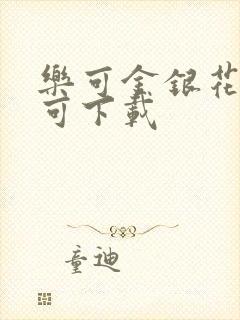 樂可金銀花
可下載
童迪